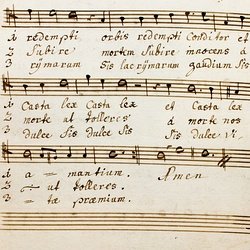 1 redempti orbis redempti Conditor et
2 Subire mortem Subire innocens à
3 rÿmarum Sis lacrÿmarum gaudium Sis
1 Casta lex Casta lex et Casta lex
2 morte ut tolleres à morte nos
3 dulce Sis dulce Sis Sis dulce Vi
1 a = mantium. Amen.
2 = ut tolleres.
3 = tæ præmium.